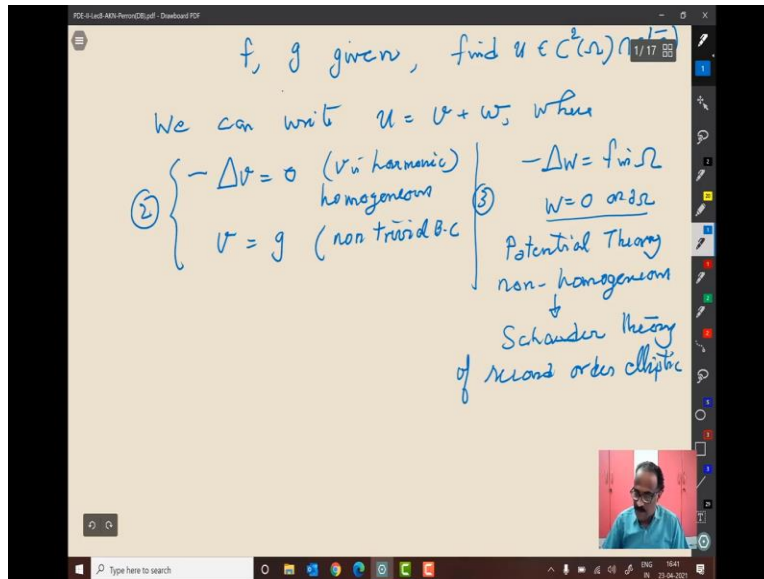 PDE-II-Lec8-AKN-Perron(DB).pdf - Drawboard PDF
f, g given, find u ∈ C²(Ω) ∩
1 / 17
We can write u = v + w, where
② { - Δv = 0 (v is harmonic)
homogeneous
v = g (non trivial B.C
③ -Δw = f in Ω
w = 0 on ∂Ω
Potential Theory
non-homogeneous
↓
Schauder Theory
of second order elliptic
Type here to search
ENG
IN
16:41
23-04-2021